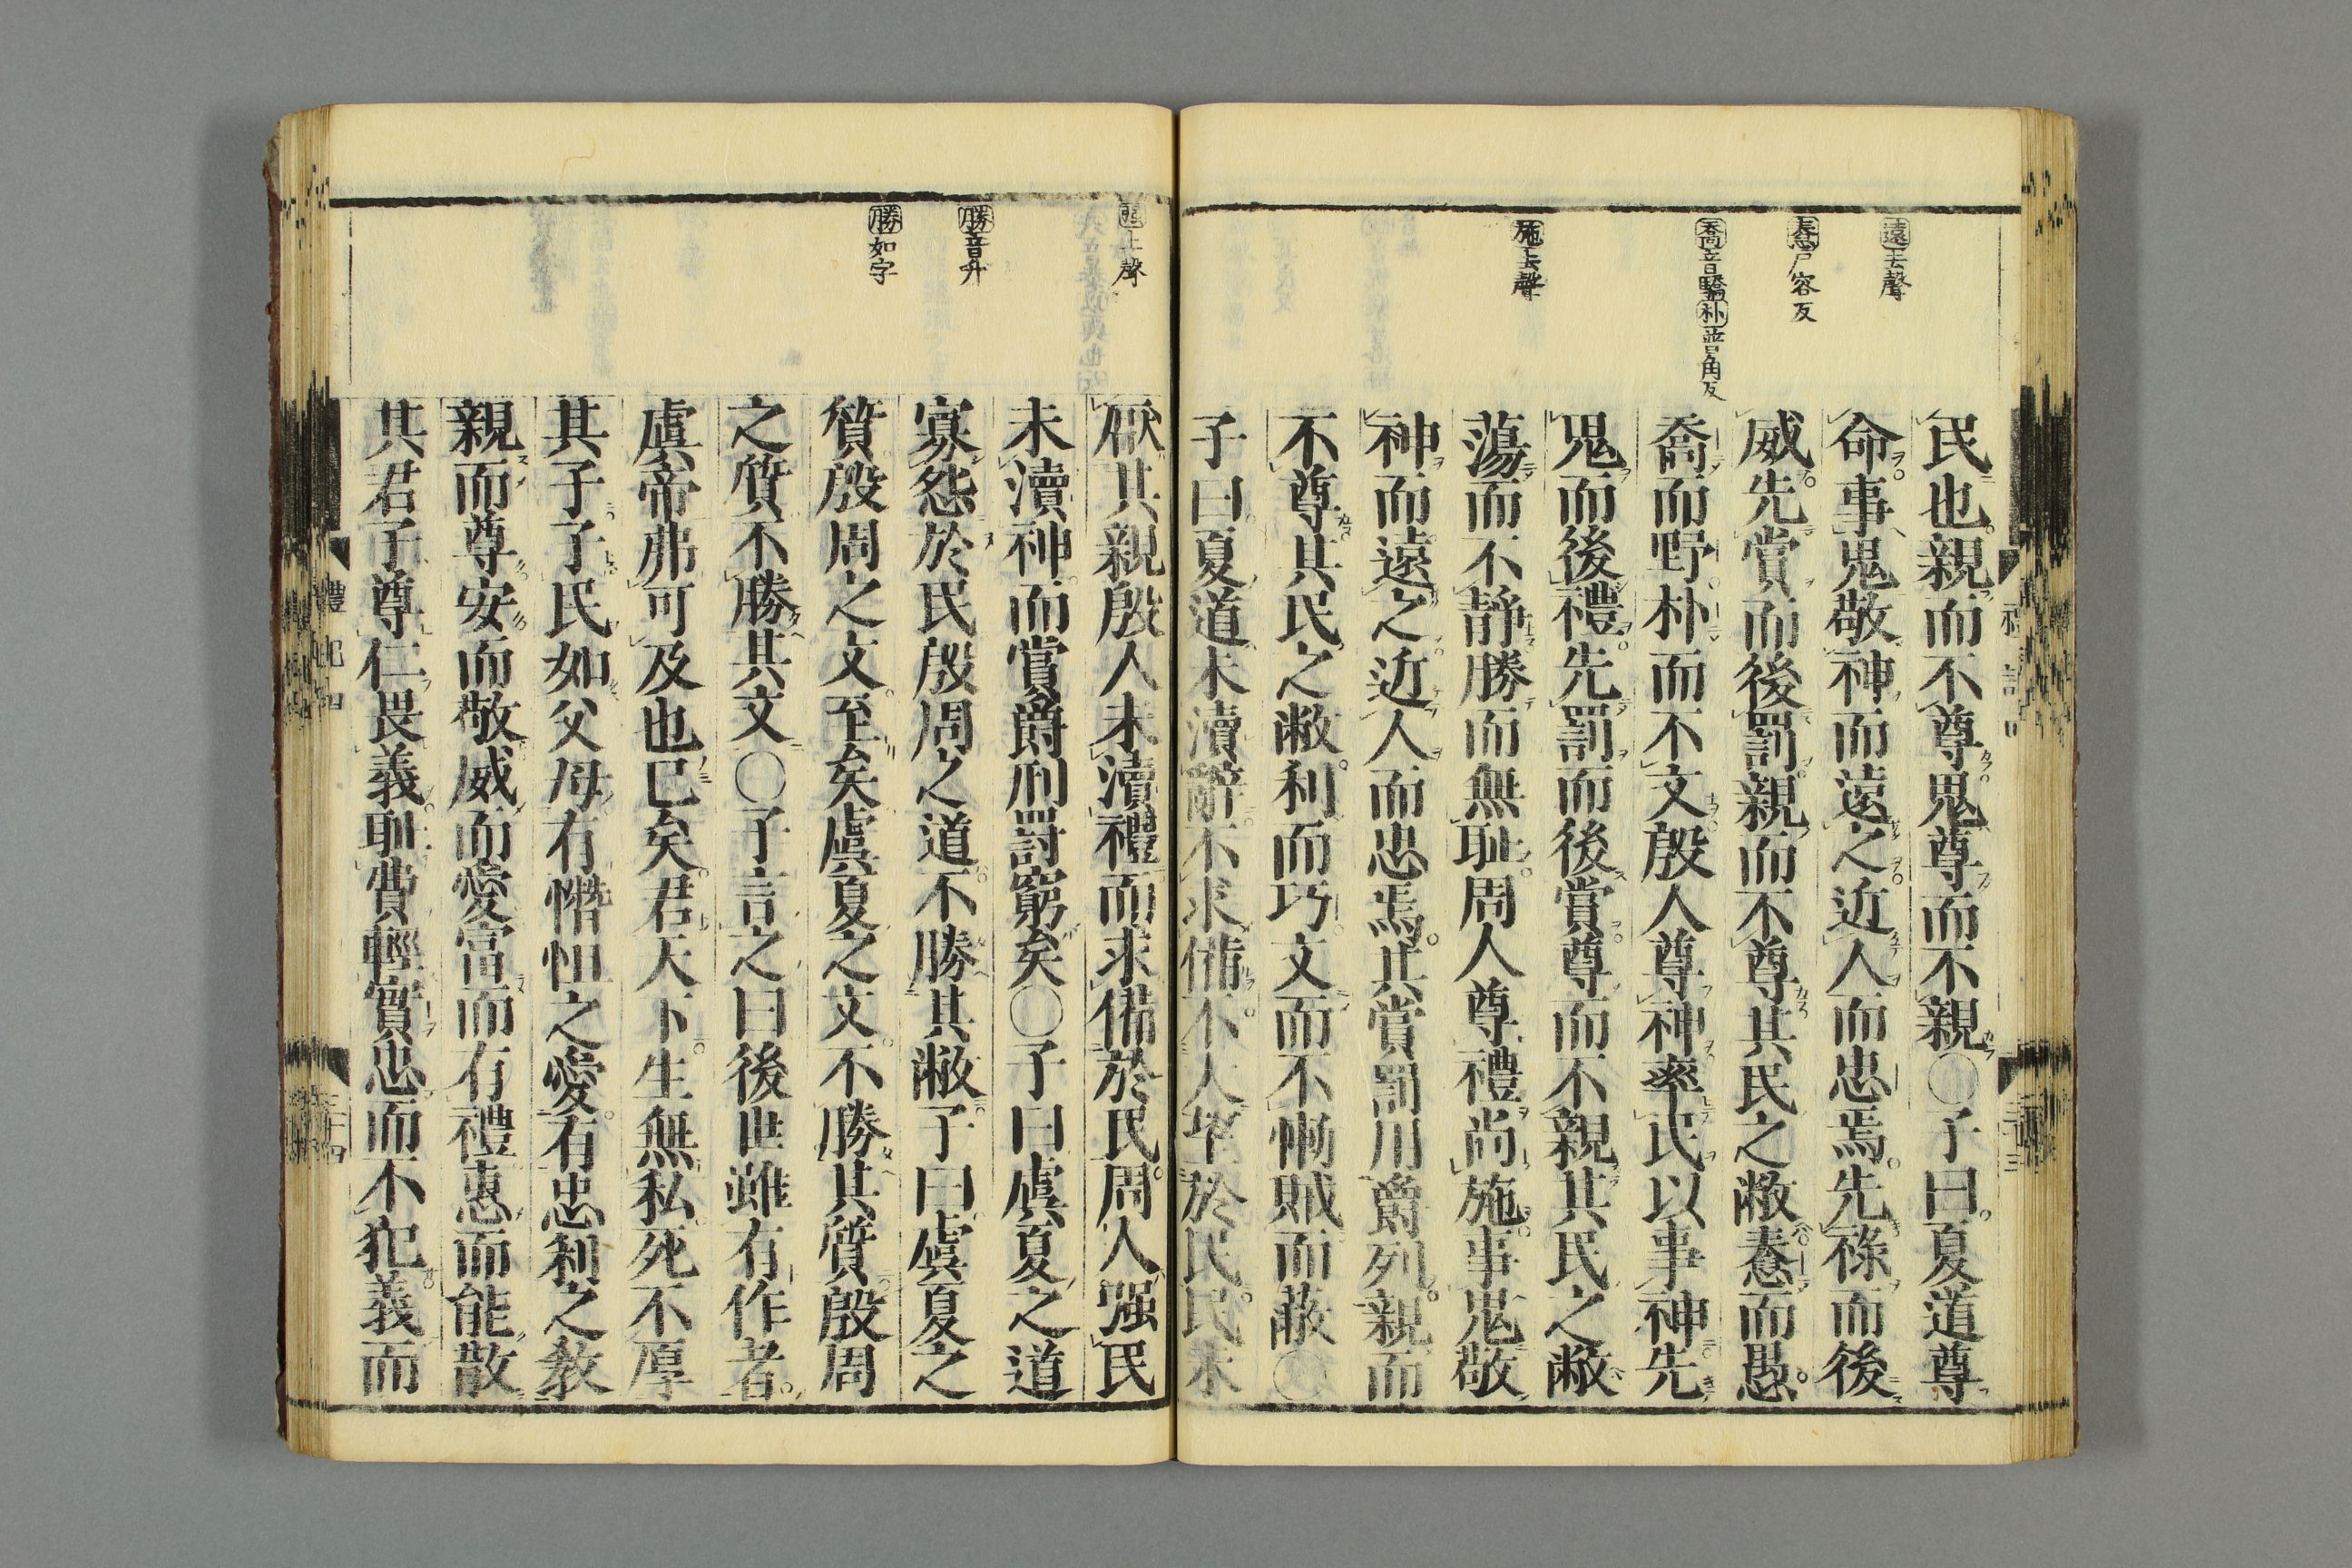 遠去聲
憃尸容反
喬音驕朴普角反
施去聲
民也親而不尊鬼尊而不親○子曰夏道尊
命事鬼敬神而遠之近人而忠焉先祿而後
威先賞而後罰親而不尊其民之敝憃而愚
喬而野朴而不文殷人尊神率民以事神先
鬼而後禮先罰而後賞尊而不親其民之敝
蕩而不靜勝而無恥周人尊禮尚施事鬼敬
神而遠之近人而忠焉其賞罰用爵列親而
不尊其民之敝利而巧文而不慚賊而蔽○
子曰夏道未瀆辭不求備不大望於民民未
上聲
勝音升
勝如字
厭其親殷人未瀆禮而求備於民周人强民
未瀆神而賞爵刑罰窮矣○子曰虞夏之道
寡怨於民殷周之道不勝其敝子曰虞夏之
質殷周之文至矣虞夏之文不勝其質殷周
之質不勝其文○子言之曰後世雖有作者
虞帝弗可及也已矣君天下生無私死不厚
其子子民如父母有憯怛之愛有忠利之教
親而尊安而敬威而愛富而有禮惠而能散
其君子尊仁畏義耻費輕實忠而不犯義而
禮記四
三十四